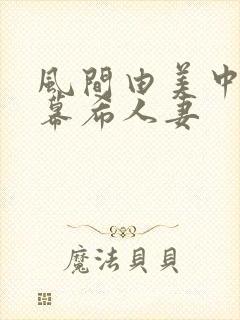 風間由美中
幕希人妻
魔法貝貝